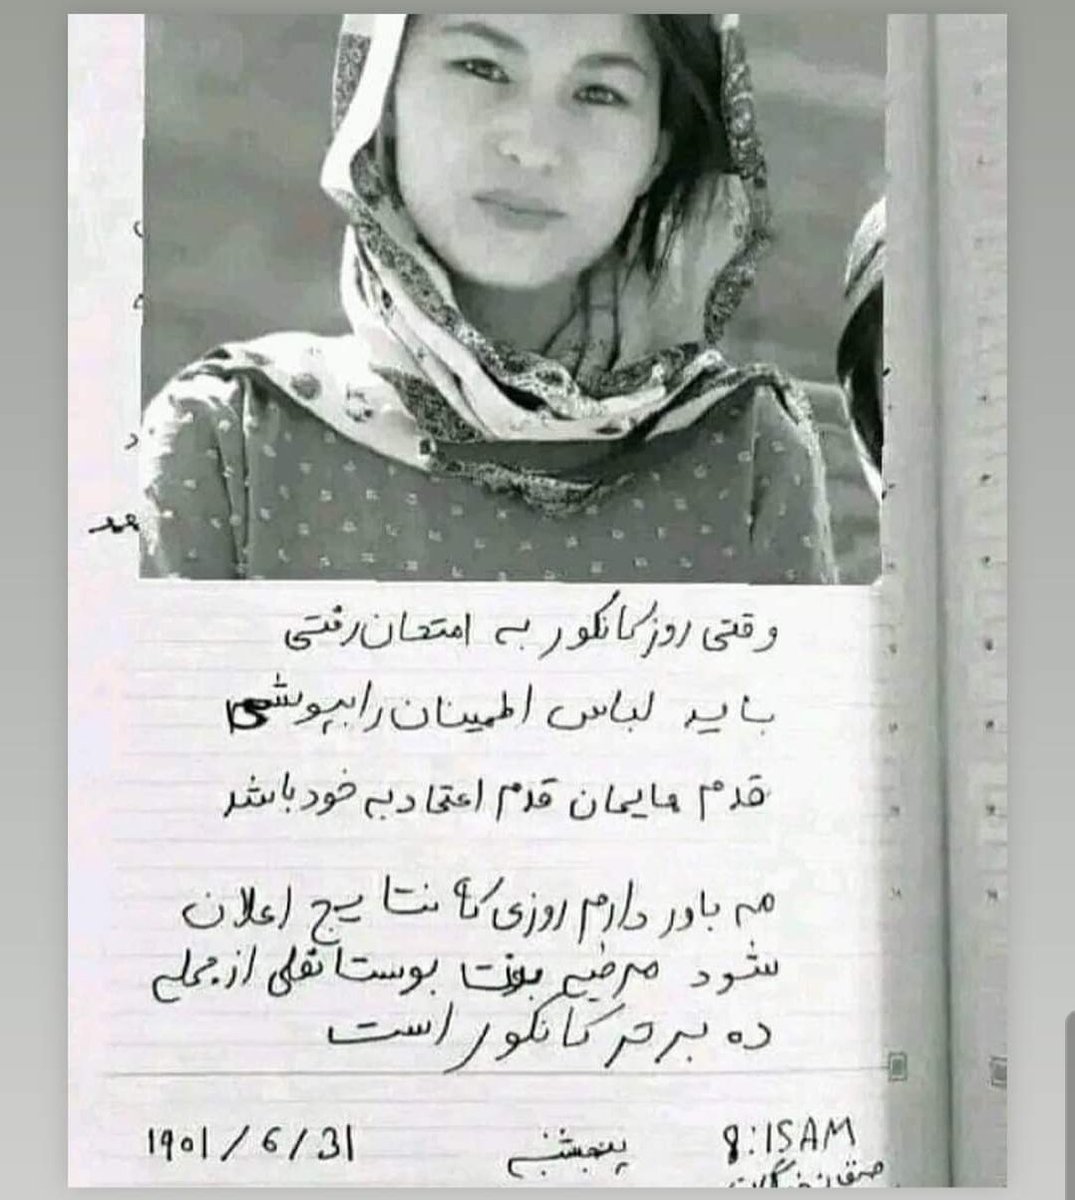 وقتی روز کانکور به امتحان رفتی
باید لباس اطمینان را بپوشی
قدم هایمان قدم اعتماد به خود باشد
مه باور دارم روزی که نتایج اعلان
شود مرضیه بوستانعلی از جمله
ده برتر کانکور است
8:15 AM پنجشنبه 1901/6/31